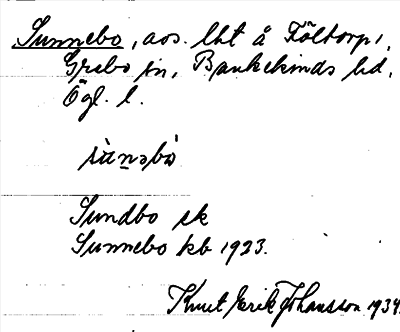 Sunnebo, aos. lht å Fältorp,
Grebo sn, Bankekinds hd,
Ögl. l.
sùnəbò
Sundbo sk
Sunnebo kb 1923.
Knut Erik Johansson 1934.